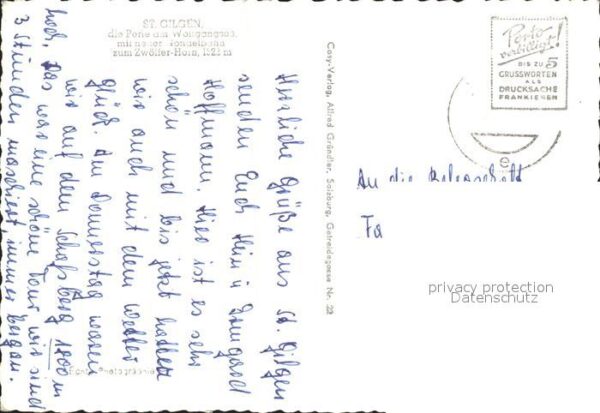 ST. GILGEN,
die Perle am Wolfgangsee,
mit neuer Gondelbahn
zum Zwölfer-Horn, 1522 m
Herzliche Grüße aus St. Gilgen
senden Euch Hein u Irmgard
Hoffmann. Hier ist es sehr
schön und bis jetzt hatten
wir auch mit dem Wetter
Glück. Am Donnerstag waren
wir auf dem Schafberg 1800 m
hoch. Das war eine schöne Tour wir sind
3 Stunden marschiert immer bergan.
Cosy-Verlag, Alfred Gründler, Salzburg, Getreidegasse Nr. 22
Porto
verbilligt!
BIS ZU 5
GRUSSWORTEN
ALS
DRUCKSACHE
FRANKIEREN
e
An die Belegschaft
Fa
privacy protection
Datenschutz